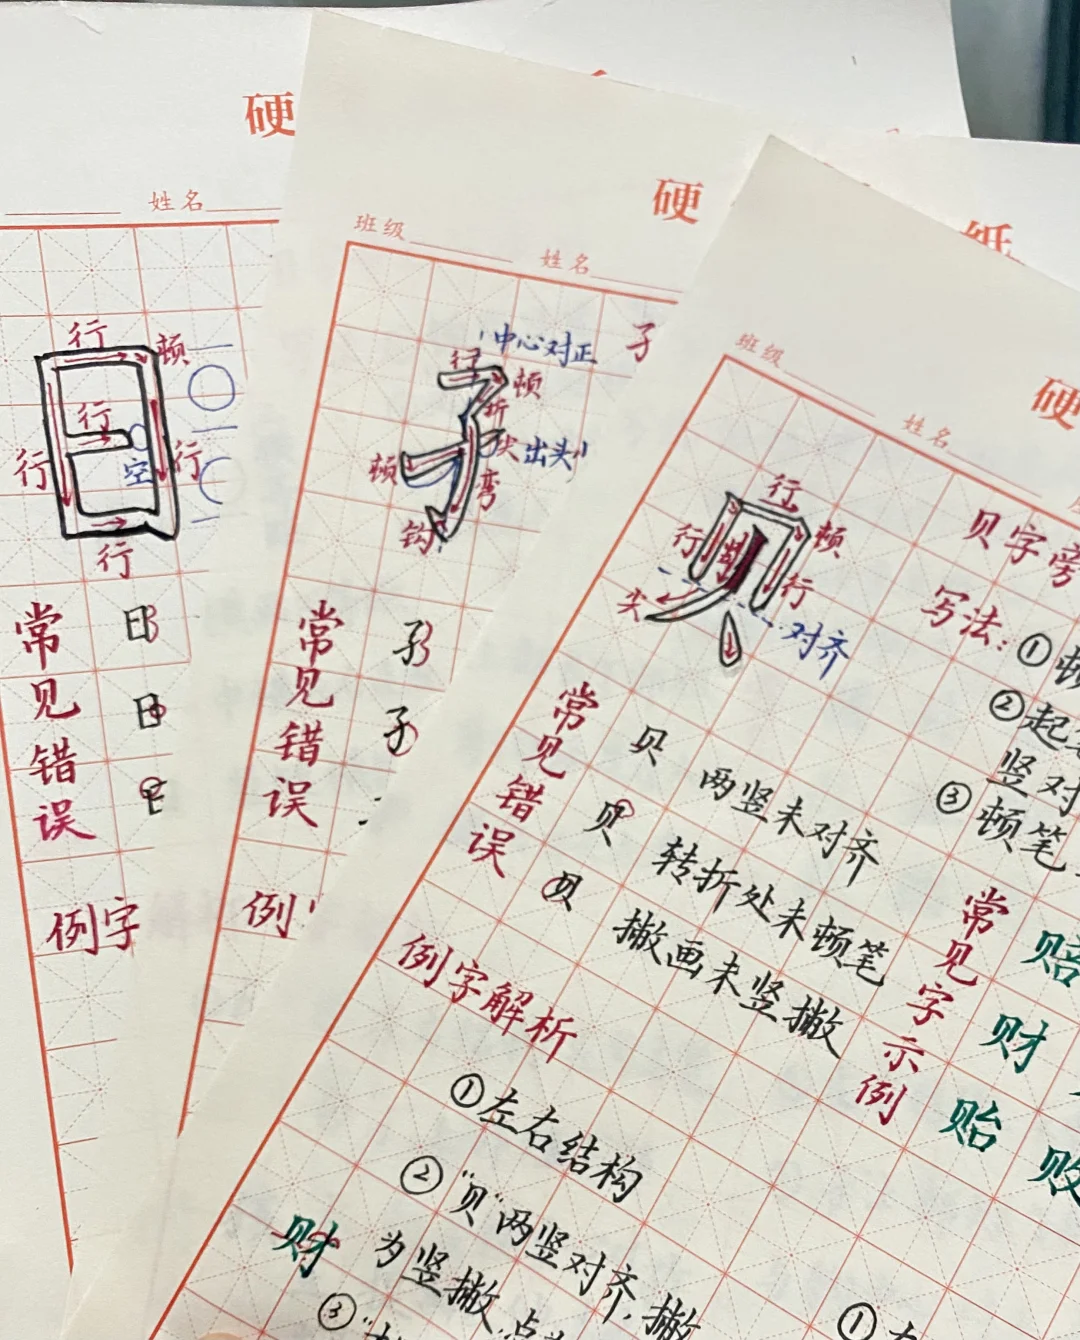 硬
姓名
行
顿
行
行
空
行
行
常见错误
日
日
例字
硬
班级
姓名
中心对正
子
行
顿
折
尖
出头
顿
弯
钩
常见错误
子
子
例
硬
纸
班级
姓名
贝字旁
行
行
顿
行
尖
对齐
写法:
①顿
②起
竖对
③顿笔
常见错误
贝
两竖未对齐
贝
转折处未顿笔
贝
撇画未竖撇
常见字示例
赔
财
贻
败
例字解析
①左右结构
②"贝"两竖对齐,撇
为竖撇
财
③
①左